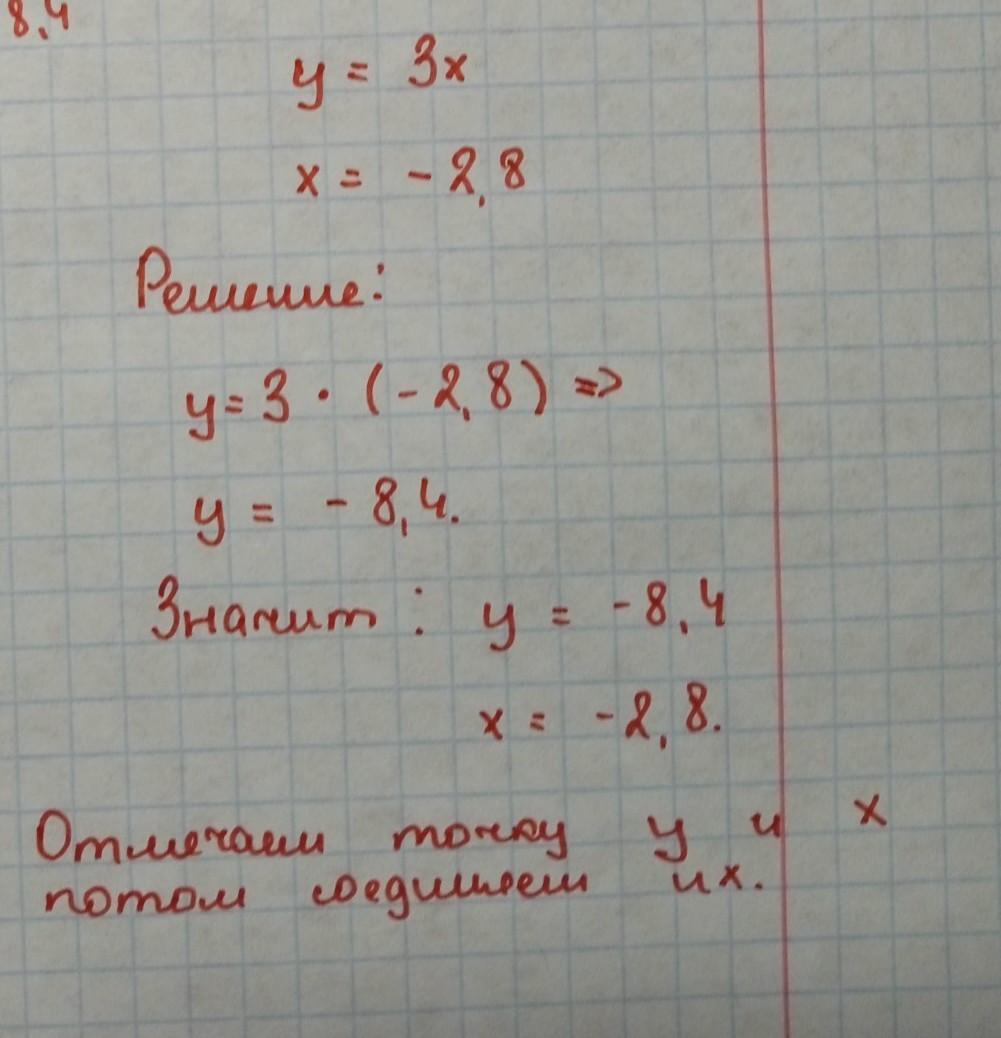 8,4
y = 3x
x = -2,8
Решение:
y = 3 · (-2,8) =>
y = -8,4.
Значит: y = -8,4
x = -2,8.
Отмечаем точку y и x
потом соединяем их.